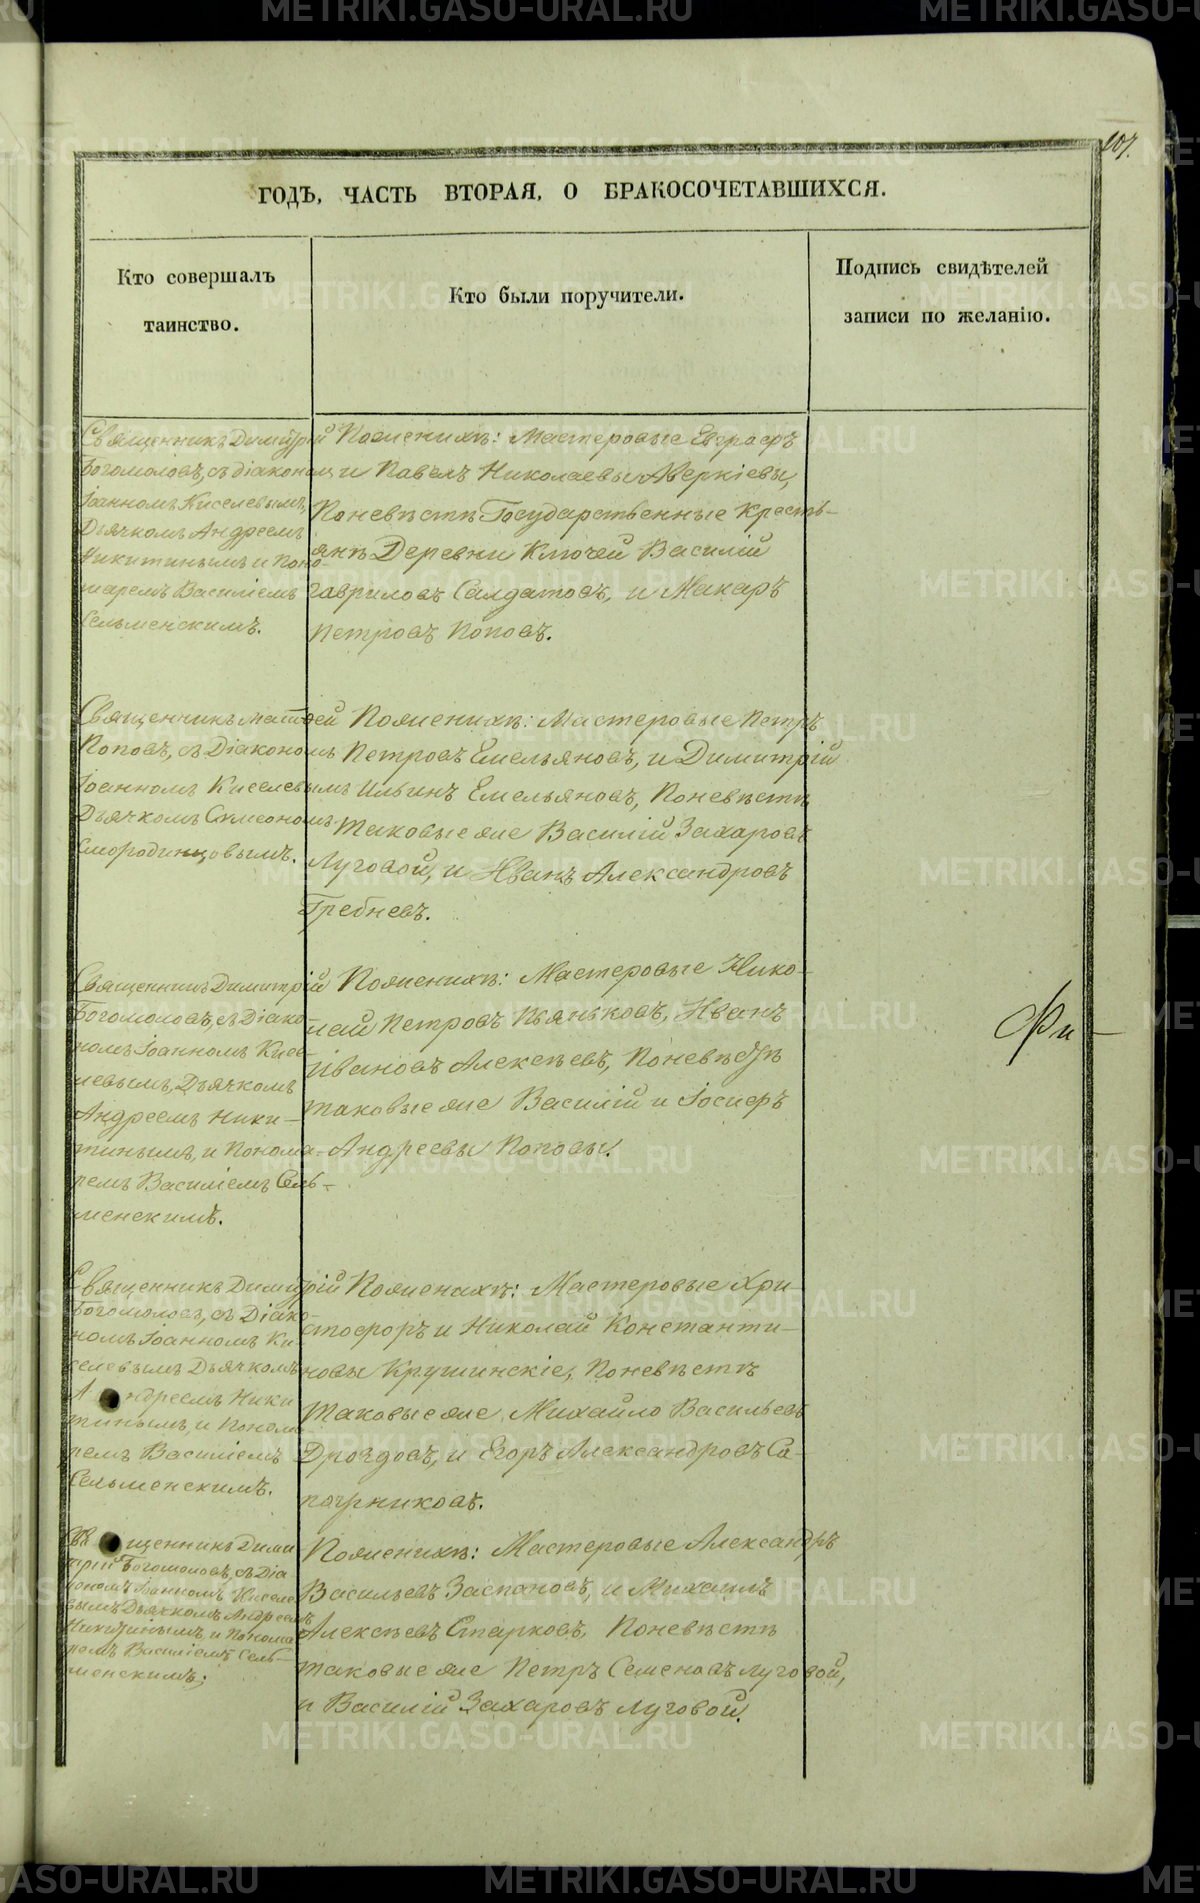 107.
ГОДЪ, ЧАСТЬ ВТОРАЯ, О БРАКОСОЧЕТАВШИХСЯ.
Кто совершалъ
таинство.
Кто были поручители.
Подпись свидѣтелей
записи по желанію.
Священникъ Димитрій
Богомоловъ, съ діакономъ
Іоанномъ Киселевымъ,
Дьячкомъ Андреемъ
Никитинымъ и Поно-
маремъ Василіемъ
Сельменскимъ.
Пожених&: Мастеровые Евграфъ
и Павелъ Николаевы Аверкіевы,
Поневѣстѣ Государственные кресть-
янѣ Деревни Ключей Василій
Гавриловъ Салдатовъ, и Макаръ
Петровъ Поповъ.
Священникъ Матфей
Поповъ, съ Діакономъ
Іоанномъ Киселевымъ
Дьячкомъ Симеономъ
Смородинцовымъ.
Поженихѣ: Мастеровые Петръ
Петровъ Емельяновъ, и Димитрій
Ильинъ Емельяновъ, Поневѣстѣ
таковые же Василій Захаровъ
Луговой, и Иванъ Александровъ
Гребневъ.
Священникъ Димитрій
Богомоловъ, съ Діако-
номъ Іоанномъ Кисе-
левымъ, Дьячкомъ
Андреемъ Ники-
тинымъ, и Понома-
ремъ Василіемъ Сель-
менскимъ.
Поженихѣ: Мастеровые Нико-
лай Петровъ Пьянковъ, Иванъ
Ивановъ Алексѣевъ, Поневѣстѣ
таковые же Василій и Іосифъ
Андреевы Поповы.
Фи-
Священникъ Димитрій
Богомоловъ, съ Діако-
номъ Іоанномъ Ки-
селевымъ Дьячкомъ
Андреемъ Ники
тинымъ, и Понома-
ремъ Василіемъ
Сельменскимъ.
Поженихѣ: Мастеровые Хри-
стофоръ и Николай Константи-
новы Крушинскіе, Поневѣстѣ
таковые же Михайло Васильевъ
Дроздовъ, и Егоръ Александровъ Са-
пожниковъ.
Священникъ Дими
трій Богомоловъ, съ Діа
кономъ Іоанномъ Киселе
вымъ Дьячкомъ Андреемъ
Никитинымъ, и Понома
ремъ Василіемъ Сель-
менскимъ;
Поженихѣ: Мастеровые Александръ
Васильевъ Заспановъ, и Михаилъ
Алексѣевъ Старковъ, Поневѣстѣ
таковые же Петръ Семеновъ Луговой,
и Василій Захаровъ Луговой.
METRIKI.GASO-URAL.RU